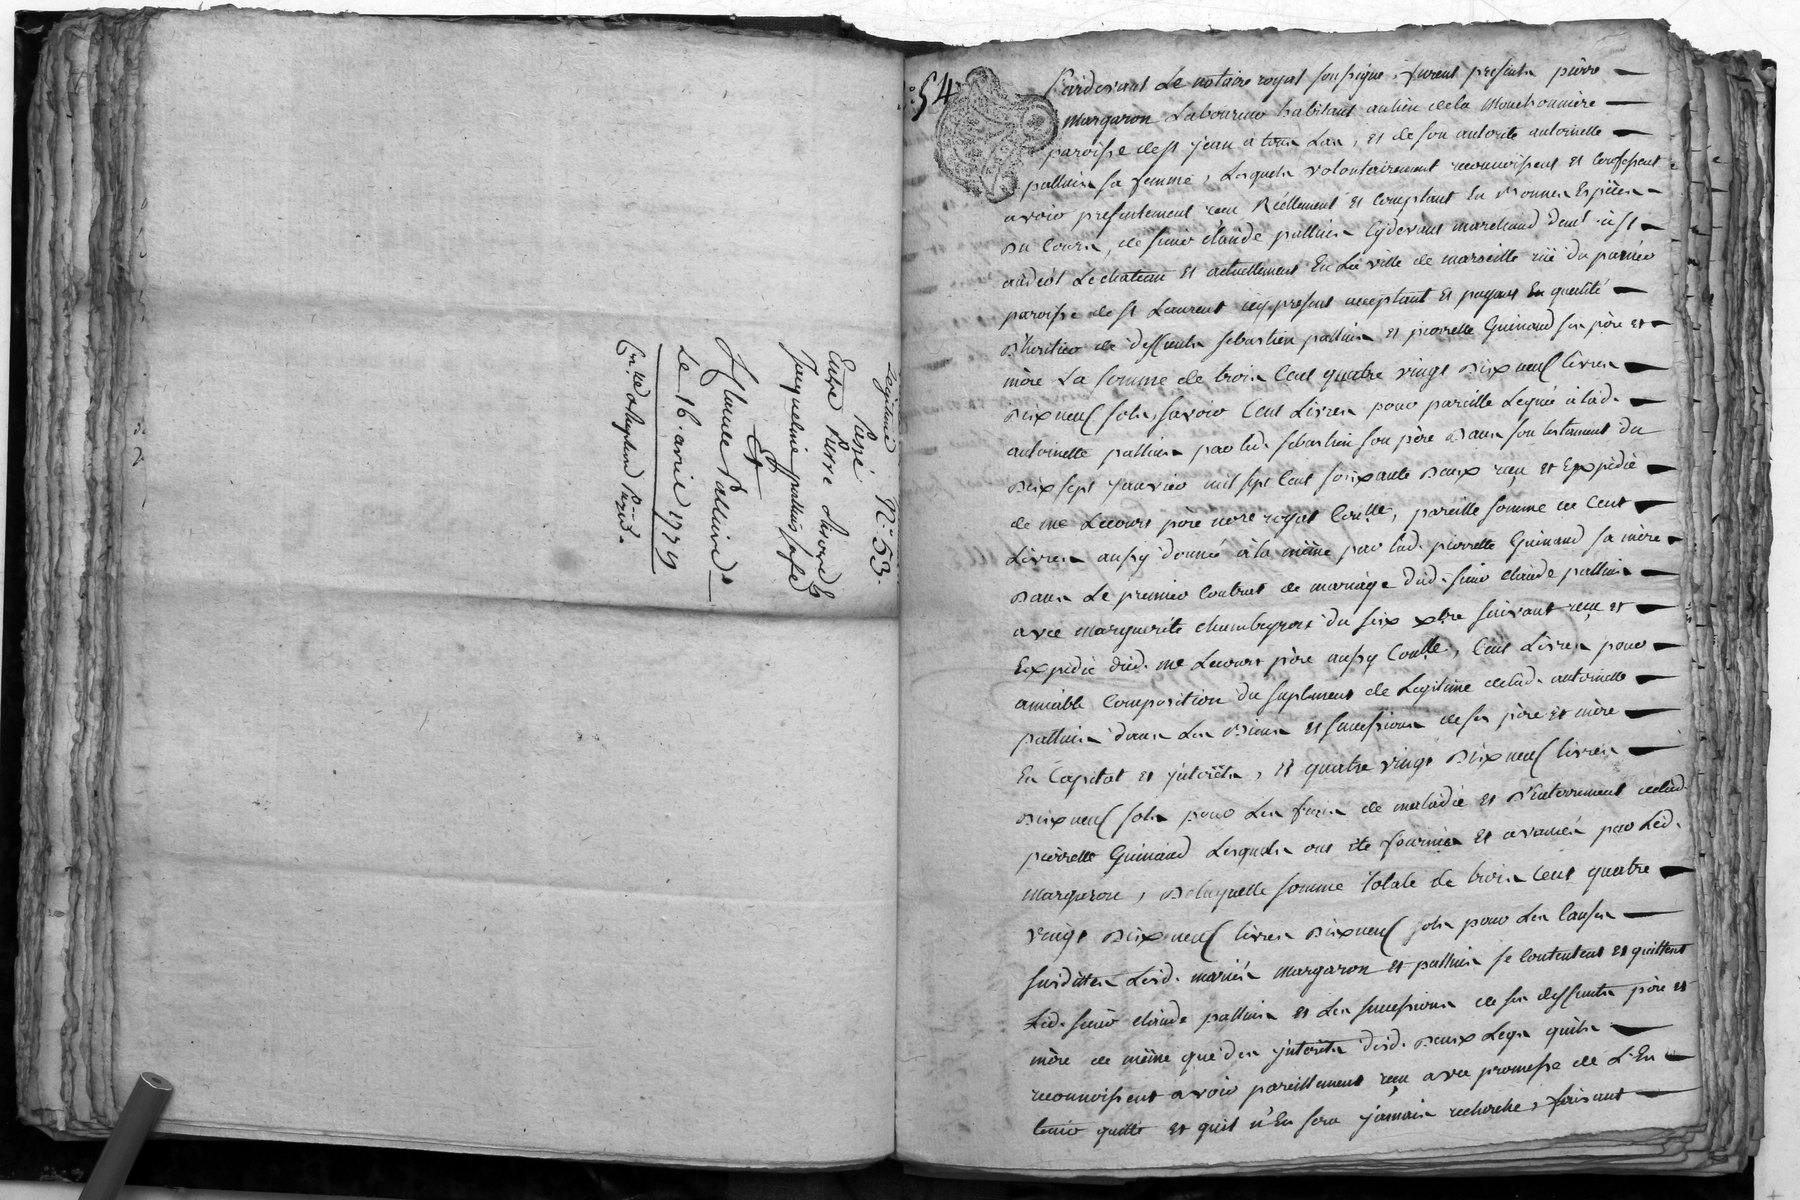 Legitime N.° 53.
Passé
Entre Pierre
Jacqueline pallius sa fe
Et
Claude Pallius
Le 16 avril 1779
54
Pardevant Le notaire royal soussigné, furent présents pierre
Margaron Laboureur habitant au lieu de la Mouchonnière
paroisse de st jean a tous Las, et de son autorité antoinette
pallius sa femme, Lesquels volontairement reconnoissent et confessent
avoir presentement reçu Réellement et comptant En Bonnes Espèces
Du Cours, de sieur claude pallius Cydevant marchand demt à st
andéol Le chateau et actuellement En La ville de marseille rüe du
paroisse de st Laurent icy present acceptant et payant En qualité
D'heritier de deffunts sebastien pallius et pierrette Guinand ses père et
mère La somme de trois Cent quatre vingt Dix neuf livres
Dix neuf sols, savoir Cent Livres pour pareille Leguée à lad.
antoinette pallius par led. sebastien son père Dans son testament du
Dix sept janvier mil sept Cent soixante Deux reçu et Expédié
de me Lecourt père nore royal Coulle, pareille somme de Cent
Livres aussy donnée à la même par lad. pierrette Guinand sa mère
Dans Le premier Contrat de mariage dud. sieur claude pallius
avec marguerite chambeyron du six xbre suivant reçu et
Expédié dud. me Lecourt père aussy Coulle, Cent Livres pour
amiable Composition du suplément de Legitime de lad. antoinette
pallius dans Les Biens et successions de ses père et mère
En Capital et jnterêts, et quatre vingt Dix neuf livres
Dix neuf sols pour Les frais de maladie et D'Enterrement de lad.
pierrette Guinand Lesquels ont été fournies et avancés par Led.
Margaron, De laquelle somme totale de trois Cent quatre
vingt Dix neuf livres Dix neuf sols pour Les Causes
susdittes Lesd. mariés Margaron et pallius se Contentent et quittent
Led. sieur claude pallius et Les successions de ses deffunts père et
mère de même que des jnterêts desd. Deux Legs quils
reconnoissent avoir pareillement reçu avec promesse de L'En
tenir quitte et quil n'En sera jamais recherché, faisant